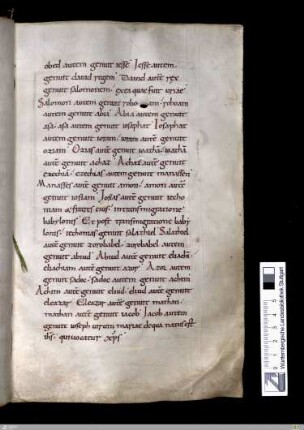 obed autem genuit iesse Iesse autem
genuit dauid regem Dauid aute rex
genuit salomonem ex ea que fuit uriae
Salomon autem genuit robo am roboam
autem genuit abia Abia autem genuit
asa asa autem genuit iosaphat Iosaphat
autem genuit ioram ioram aute genuit
oziam Ozias aute genuit ioatha ioatha
aute genuit achaz Achaz aute genuit
ezechia ezechias autem genuit manassen
Manasses aute genuit amon amon aute
genuit iosiam Josias aute genuit iecho
niam & fratres eius in transmigratione
babylonis Et post transmigratione babi
lonis iechonias genuit salathiel Salathiel
aute genuit zorobabel zorobabel autem
genuit abiud Abiud aute genuit eliachi
eliachim aute genuit azor Azor autem
genuit sadoc sadoc autem genuit achim
Achim aute genuit eliud eliud aute genuit
eleazar Eleazar aute genuit mathan
mathan aute genuit iacob Jacob autem
genuit ioseph uirum mariae de qua natus est
ihs qui uocatur xps
Württembergische Landesbibliothek Stuttgart